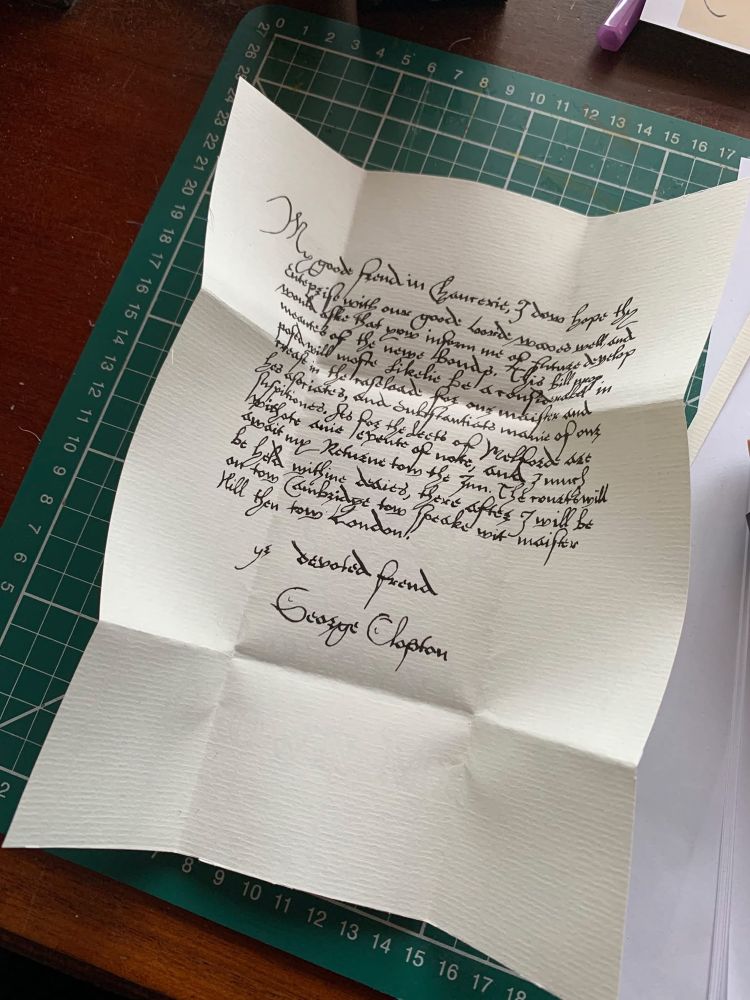 My goode frend in Chancerie, I dow hope thy
Enteprise with our goode Lorde woves well, and
would aske that yow inform me of future develop
meantes of the newe Bonds. This bill prop
posed will moste Likelie be a consideracon in
crease in the caseloade for our maister and
his asociates, and Substantiats manie of our
Suspitiones. As for the Leets of Melforde are
withote anie expente of note, and I much
await my Returne tow the Inn. The courts will
be held withine decies, there after I will be
on tow Cambridge tow speake wit maister
Hill then tow London.
yr devoted frend
George Clopton
0 1 2 3 4 5 6 7 8 9 10 11 12 13 14 15 16 17
21 24 23 22 21 20 19 18 17 16 15 14 13 12 11 10 9 8 7 6 5
2
7 8 9 10 11 12 13 14 15 16 17 18